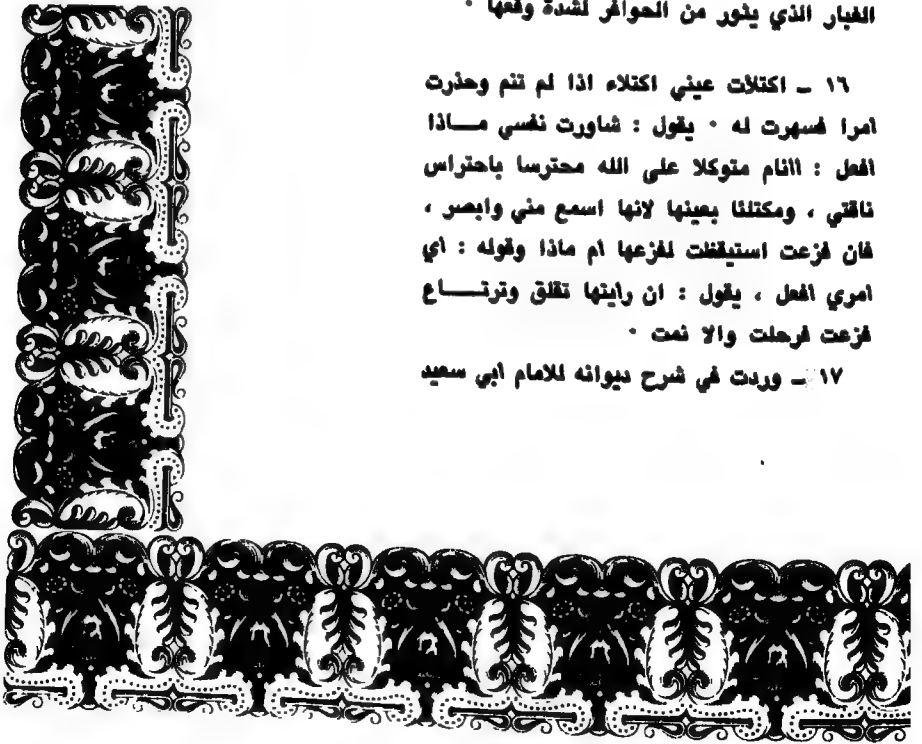 الغبار الذي يثور من الحوافر لشدة وقعها ٠
١٦ ـ اكتلأت عيني اكتلاء اذا لم تنم وحذرت
امرا فسهرت له ٠ يقول : شاورت نفسي مـــاذا
افعل : اانام متوكلا على الله محترسا باحتراس
ناقتي ، ومكتلئا بعينها لانها اسمع مني وابصر ،
فان فزعت استيقظت لفزعها ام ماذا وقوله : اي
امري افعل ، يقول : ان رايتها تقلق وترتـــــاع
فزعت فرحلت والا نمت ٠
١٧ ـ وردت في شرح ديوانه للامام ابي سعيد